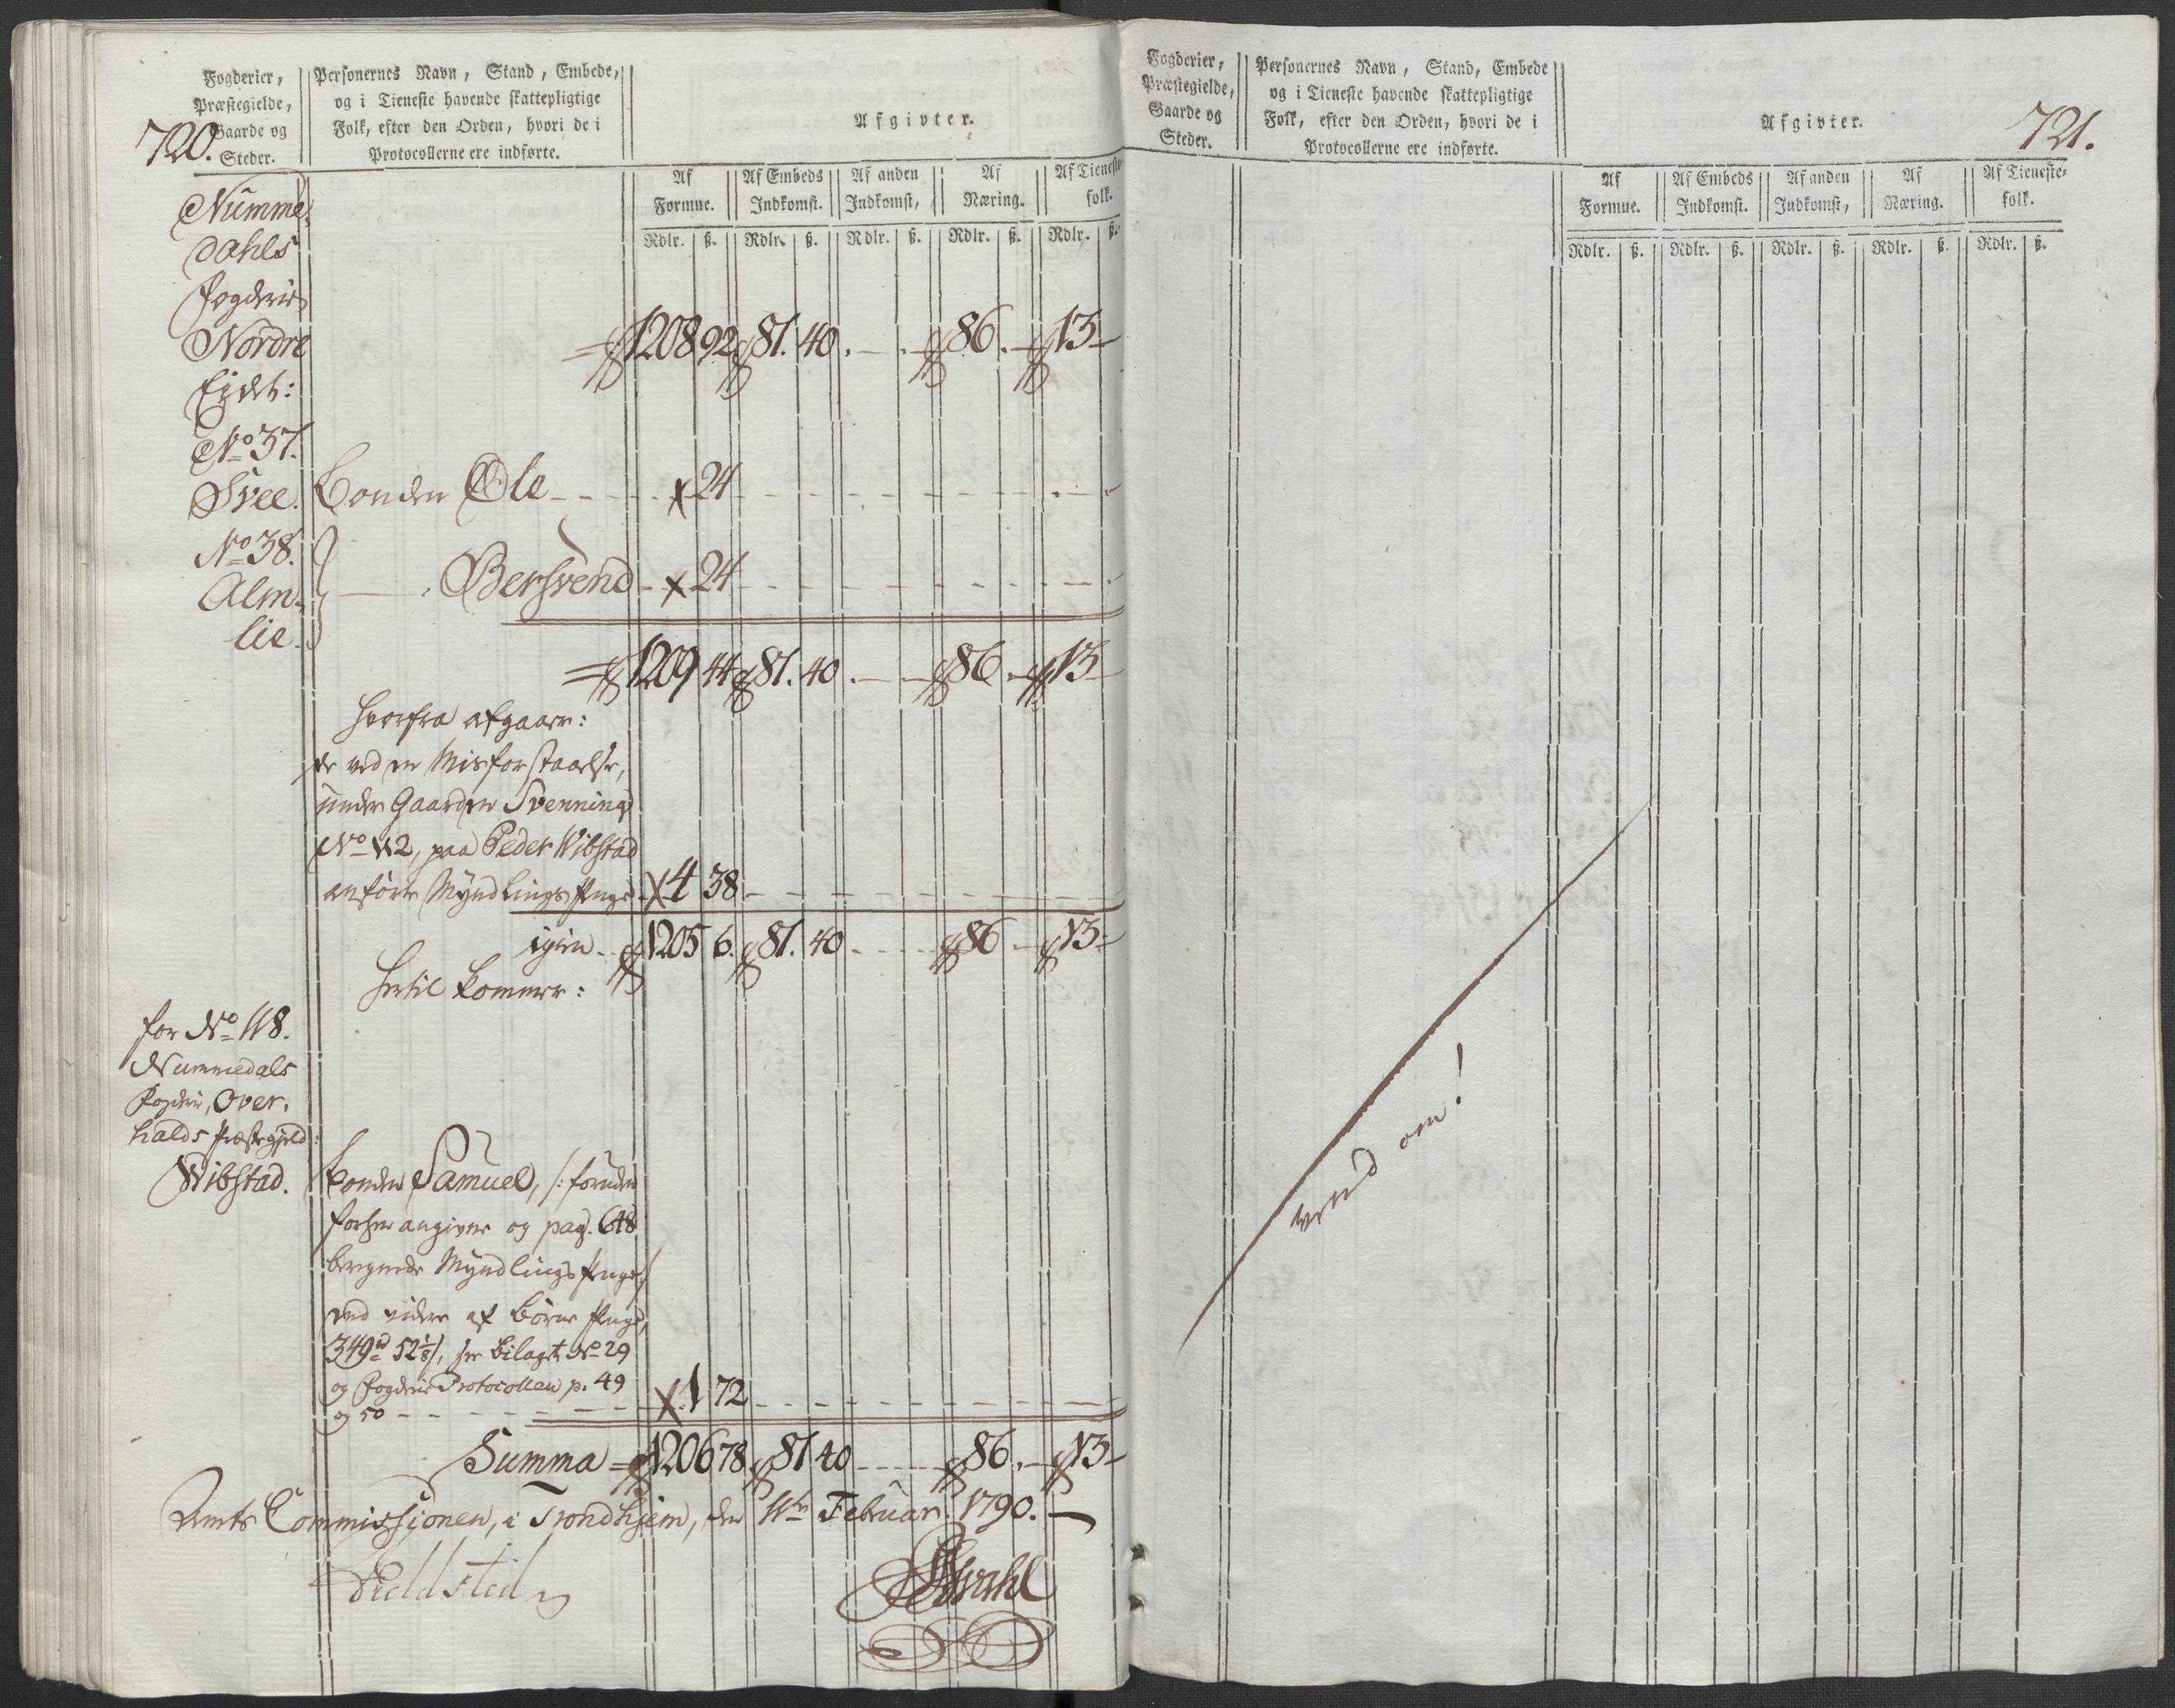 720.
Fogderier,
Præstegielde,
Gaarde og
Steder.
Personernes Navn, Stand, Embede,
og i Tieneste havende skattepligtige
Folk, efter den Orden, hvori de i
Protocollerne ere indførte.
Afgivter.
Af Formue.
Af Embeds Indkomst.
Af anden Indkomst,
Af Næring.
Af Tieneste folk.
Rdlr. ß. Rdlr. ß. Rdlr. ß. Rdlr. ß. Rdlr. ß.
Numme
dahls
Fogderie
Nordre
Eidet:
1208 92 81. 40. 86. 13
No 37.
Svee. Bonden Ole 24
No 38.
Alm-
lie. Bersvend 24
1209 44 81. 40. 86. 13
hvorfra afgaaer:
de ved en Misforstaaelse,
under Gaarden Svenning
No 112, paa Peder Wibstad
anførte Myndlings Penge 4 38
igien 1205 6. 81. 40 86 13
hertil kommer:
for No 118.
Nummedals
Fogderie, Over,
halds Præstegjeld:
Wibstad. Bonden Samuel, /: foruden
forhen angivne og pag. 648
beregnede Myndlings Penge /
end videre af Børne Penge,
349 rd 52 1/8 /, see bilaget No 29
og Fogderie Protocollen p. 49
og 50 1 72
Summa 1206 78 81 40 86. 13
Amts Commissionen, i Trondhjem, den 11te Februar 1790.
Fieldsted
721.
Fogderier,
Præstegielde,
Gaarde og
Steder.
Personernes Navn, Stand, Embede
og i Tieneste havende skattepligtige
Folk, efter den Orden, hvori de i
Protocollerne ere indførte.
Afgivter.
Af Formue.
Af Embeds Indkomst.
Af anden Indkomst,
Af Næring.
Af Tieneste-folk.
Rdlr. ß. Rdlr. ß. Rdlr. ß. Rdlr. ß. Rdlr. ß.
vend om!